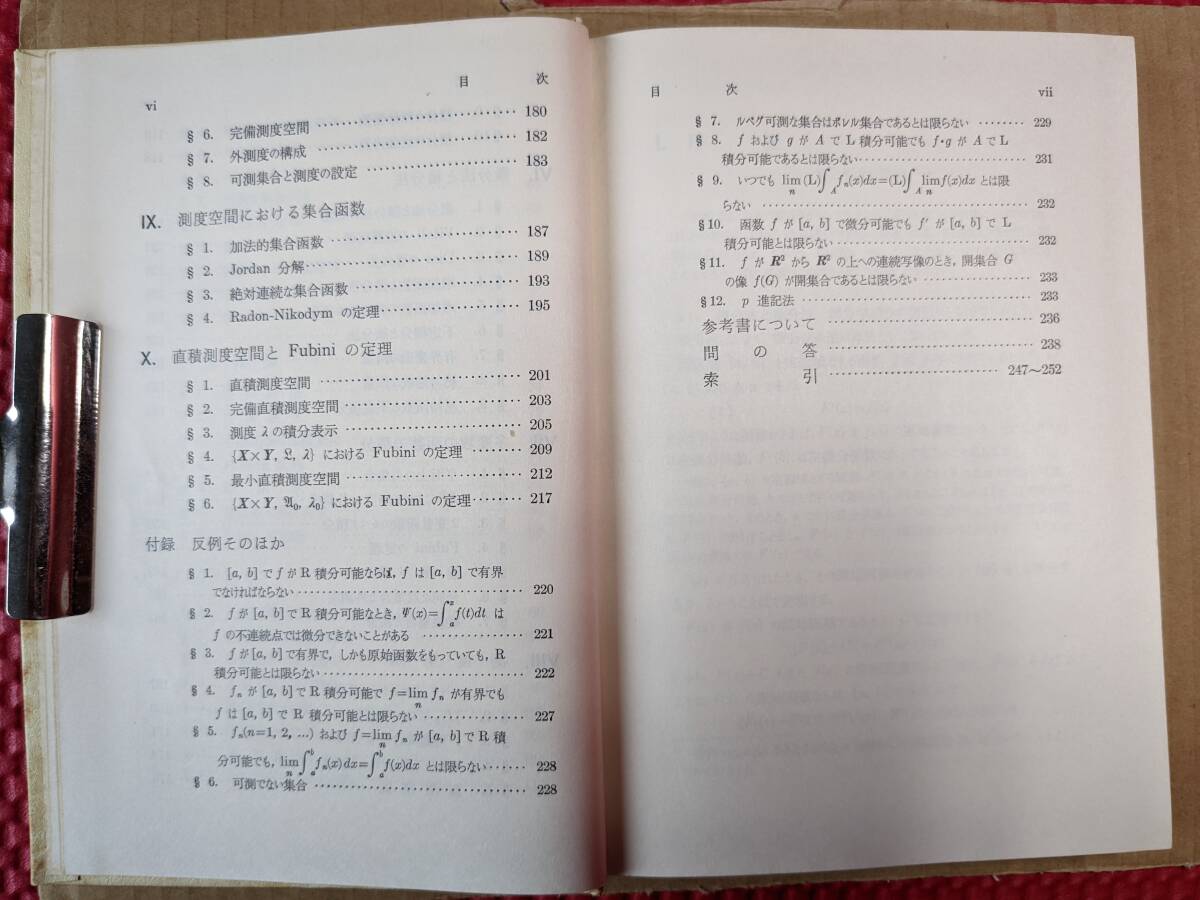 vi
目 次
§ 6. 完備測度空間 180
§ 7. 外測度の構成 182
§ 8. 可測集合と測度の設定 183
IX. 測度空間における集合函数
§ 1. 加法的集合函数 187
§ 2. Jordan 分解 189
§ 3. 絶対連続な集合函数 193
§ 4. Radon-Nikodym の定理 195
X. 直積測度空間と Fubini の定理
§ 1. 直積測度空間 201
§ 2. 完備直積測度空間 203
§ 3. 測度 λ の積分表示 205
§ 4. {X×Y, 𝔏, λ} における Fubini の定理 209
§ 5. 最小直積測度空間 212
§ 6. {X×Y, 𝔄₀, λ₀} における Fubini の定理 217
付録 反例そのほか
§ 1. [a, b] で f が R 積分可能ならば, f は [a, b] で有界
でなければならない 220
§ 2. f が [a, b] で R 積分可能なとき, Ψ(x)=∫ₐˣ f(t)dt は
f の不連続点では微分できないことがある 221
§ 3. f が [a, b] で有界で, しかも原始函数をもっていても, R
積分可能とは限らない 222
§ 4. fₙ が [a, b] で R 積分可能で f=lim_n fₙ が有界でも
f は [a, b] で R 積分可能とは限らない 227
§ 5. fₙ(n=1, 2, ...) および f=lim_n fₙ が [a, b] で R 積
分可能でも, lim_n ∫ₐᵇ fₙ(x)dx=∫ₐᵇ f(x)dx とは限らない 228
§ 6. 可測でない集合 228
目 次
vii
§ 7. ルベグ可測な集合はボレル集合であるとは限らない 229
§ 8. f および g が A で L 積分可能でも f·g が A で L
積分可能であるとは限らない 231
§ 9. いつでも lim_n (L)∫_A fₙ(x)dx=(L)∫_A lim_n f(x)dx とは限
らない 232
§10. 函数 f が [a, b] で微分可能でも f′ が [a, b] で L
積分可能とは限らない 232
§11. f が R² から R² の上への連続写像のとき, 開集合 G
の像 f(G) が開集合であるとは限らない 233
§12. p 進記法 233
参考書について 236
問の答 238
索引 247〜252